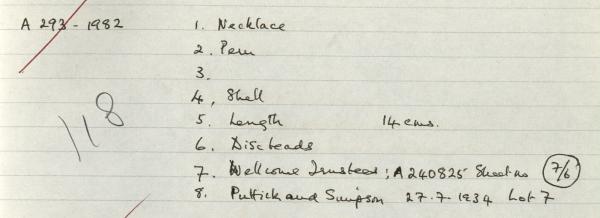 A 293 - 1982
1. Necklace
2. Peru
3.
4, Shell
5. Length 14 cms.
6. Disc beads
118
7. Wellcome Trustees; A 240825 Sheet no 7/6
8. Puttick and Simpson 27.7.1934 Lot 7